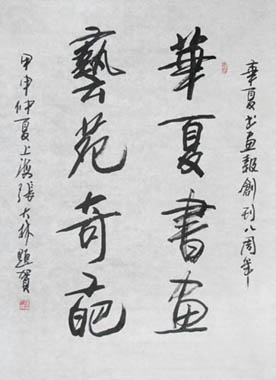 華夏书画報創刊八周年
華夏書畫
藝苑奇葩
甲申仲夏上海張大林題賀